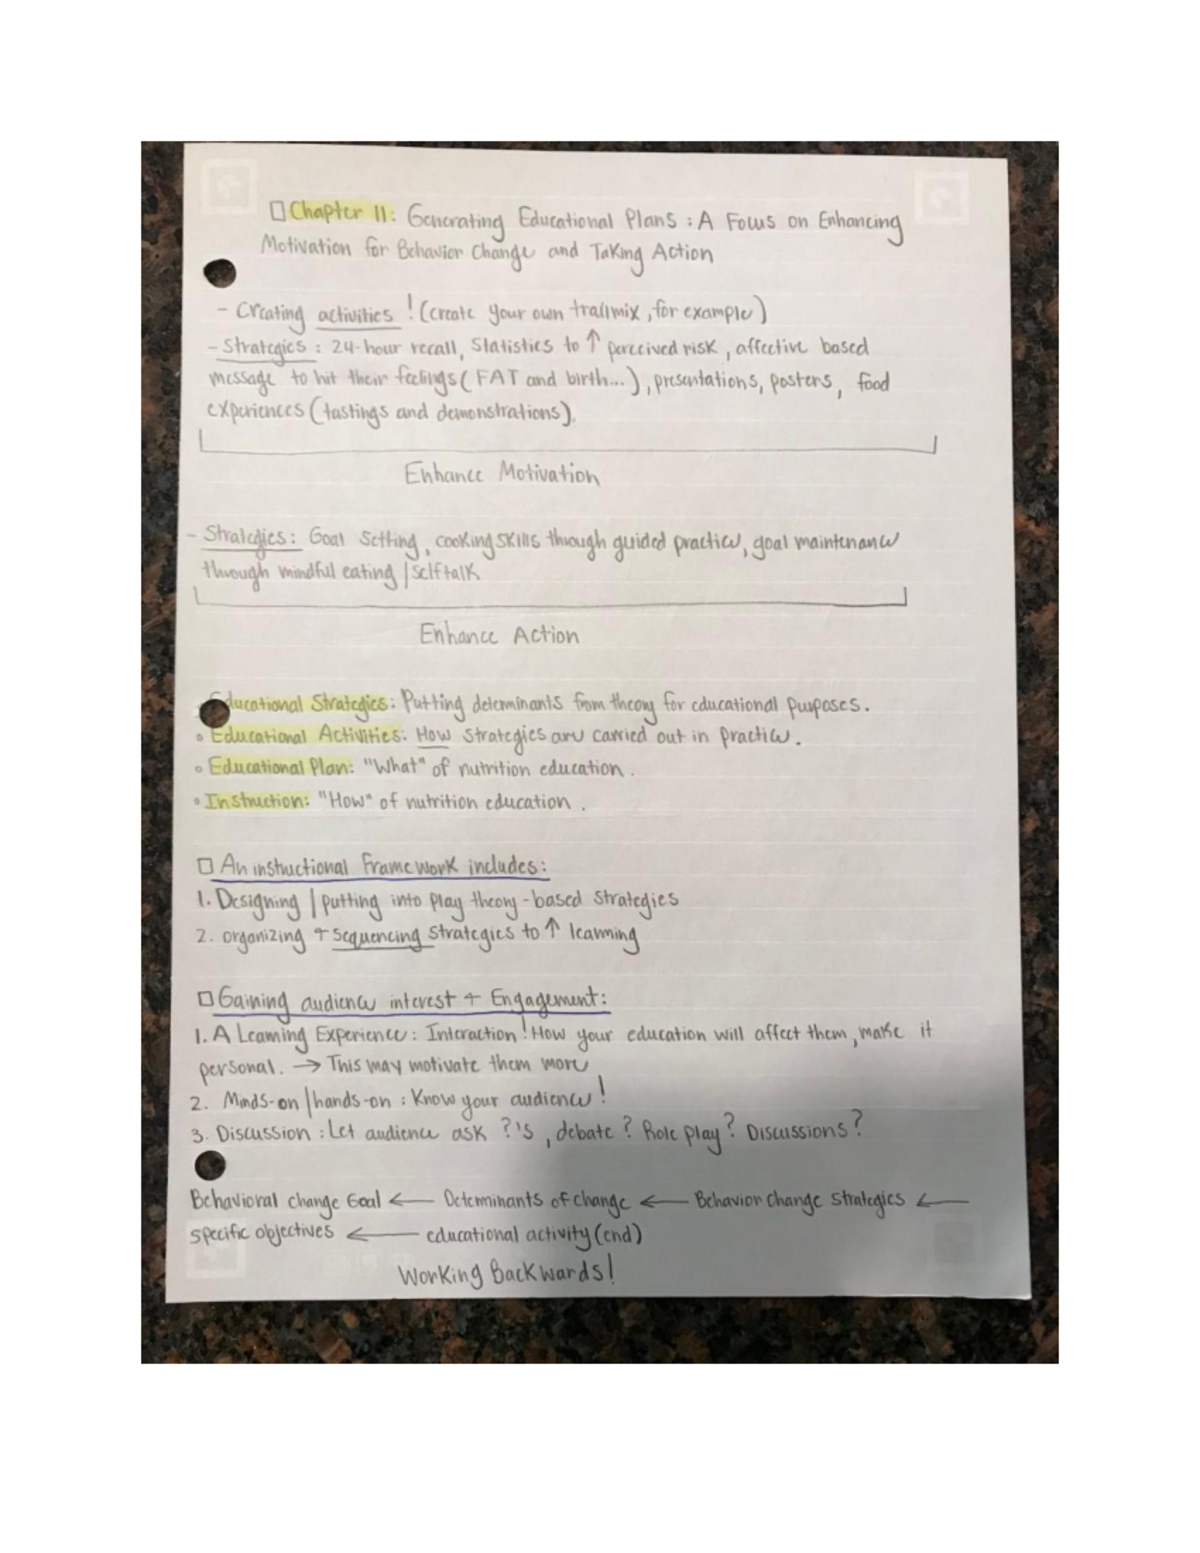 □ Chapter 11: Generating Educational Plans : A Focus on Enhancing
Motivation for Behavior Change and Taking Action
- Creating activities ! (create your own trailmix, for example)
- Strategies : 24-hour recall, Statistics to ↑ perceived risk, affective based
message to hit their feelings ( FAT and birth...), presentations, posters, food
experiences (tastings and demonstrations).
Enhance Motivation
- Strategies: Goal Setting, cooking skills through guided practice, goal maintenance
through mindful eating / selftalk
Enhance Action
Educational Strategies: Putting determinants from theory for educational purposes.
• Educational Activities: How strategies are carried out in practice.
• Educational Plan: "What" of nutrition education.
• Instruction: "How" of nutrition education.
□ An instuctional Framework includes:
1. Designing / putting into play theory-based strategies
2. organizing + sequencing strategies to ↑ learning
□ Gaining audience interest + Engagement:
1. A Learning Experience: Interaction! How your education will affect them, make it
personal. → This may motivate them more
2. Minds-on / hands-on : Know your audience!
3. Discussion : Let audience ask ?'s, debate? Role play? Discussions?
Behavioral change Goal ← Determinants of change ← Behavior change strategies ←
specific objectives ← educational activity (end)
Working Backwards!